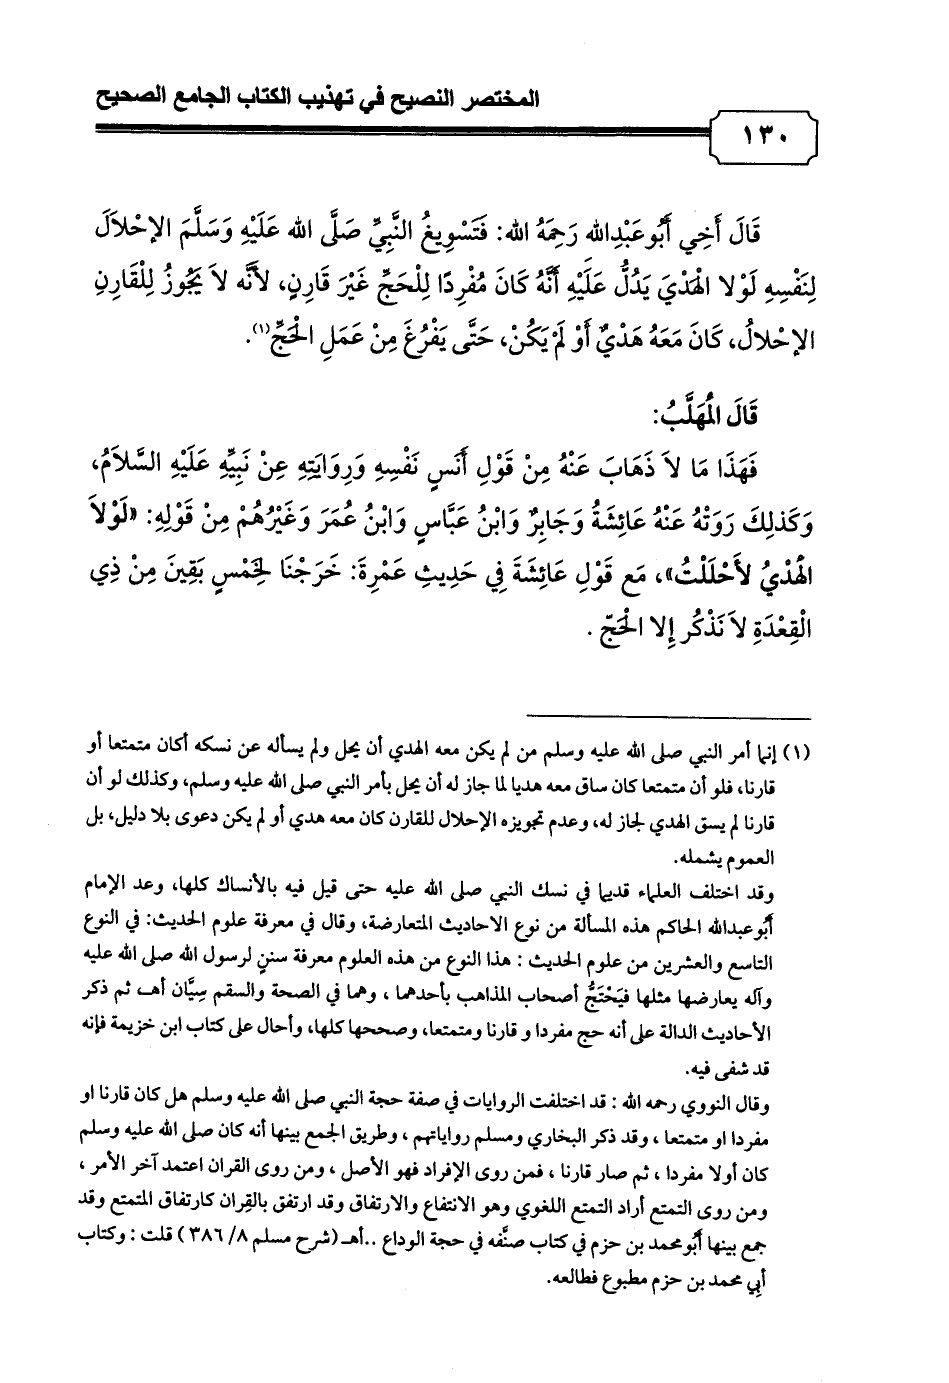 المختصر النصيح في تهذيب الكتاب الجامع الصحيح
١٣٠
قَالَ أَخِي أَبُوعَبْدِالله رَحِمَهُ الله: فَتَسْوِيغُ النَّبِيِّ صَلَّى الله عَلَيْهِ وَسَلَّمَ الإحْلاَلَ
لِنَفْسِهِ لَوْلا الهَدْيَ يَدُلُّ عَلَيْهِ أَنَّهُ كَانَ مُفْرِدًا لِلْحَجِّ غَيْرَ قَارِنٍ، لأنَّه لاَ يَجُوزُ لِلْقَارِنِ
الإحْلالُ، كَانَ مَعَهُ هَدْيٌ أَوْ لَمْ يَكُنْ، حَتَّى يَفْرُغَ مِنْ عَمَلِ الحَجِّ(١).
قَالَ المُهَلَّبُ:
فَهَذَا مَا لاَ ذَهَابَ عَنْهُ مِنْ قَوْلِ أَنَسٍ نَفْسِهِ وَرِوَايَتِهِ عِنْ نَبِيِّهِ عَلَيْهِ السَّلاَمُ،
وَكَذلِكَ رَوَتْهُ عَنْهُ عَائِشَةُ وَجَابِرٌ وَابْنُ عَبَّاسٍ وَابْنُ عُمَرَ وَغَيْرُهُمْ مِنْ قَوْلِهِ: «لَوْلاَ
الهَدْيُ لأَحْلَلْتُ»، مَع قَوْلِ عَائِشَةَ فِي حَدِيثِ عَمْرِةَ: خَرَجْنَا لِخَمْسٍ بَقِينَ مِنْ ذِي
الْقِعْدَةِ لاَ نَذْكُر إِلا الحَجّ .
(١) إنما أمر النبي صلى الله عليه وسلم من لم يكن معه الهدي أن يحل ولم يسأله عن نسكه أكان متمتعا أو
قارنا، فلو أن متمتعا كان ساق معه هديا لما جاز له أن يحل بأمر النبي صلى الله عليه وسلم، وكذلك لو أن
قارنا لم يسق الهدي لجاز له، وعدم تجويزه الإحلال للقارن كان معه هدي أو لم يكن دعوى بلا دليل، بل
العموم يشمله.
وقد اختلف العلماء قديما في نسك النبي صلى الله عليه حتى قيل فيه بالأنساك كلها، وعد الإمام
أبُوعبدالله الحاكم هذه المسألة من نوع الاحاديث المتعارضة، وقال في معرفة علوم الحديث: في النوع
التاسع والعشرين من علوم الحديث : هذا النوع من هذه العلوم معرفة سننٍ لرسول الله صلى الله عليه
وآله يعارضها مثلها فيَحْتَجُّ أصحاب المذاهب بأحدهما ، وهما في الصحة والسقم سِيَّان أهـ ثم ذكر
الأحاديث الدالة على أنه حج مفردا و قارنا ومتمتعا، وصححها كلها، وأحال على كتاب ابن خزيمة فإنه
قد شفى فيه.
وقال النووي رحمه الله : قد اختلفت الروايات في صفة حجة النبي صلى الله عليه وسلم هل كان قارنا او
مفردا او متمتعا ، وقد ذكر البخاري ومسلم رواياتهم ، وطريق الجمع بينها أنه كان صلى الله عليه وسلم
كان أولا مفردا ، ثم صار قارنا ، فمن روى الإفراد فهو الأصل ، ومن روى القران اعتمد آخر الأمر ،
ومن روى التمتع أراد التمتع اللغوي وهو الانتفاع والارتفاق وقد ارتفق بالقِران كارتفاق المتمتع وقد
جمع بينها أبُو محمد بن حزم في كتاب صنَّفه في حجة الوداع ..أهـ (شرح مسلم ٨/ ٣٨٦) قلت : وكتاب
أبِي محمد بن حزم مطبوع فطالعه.